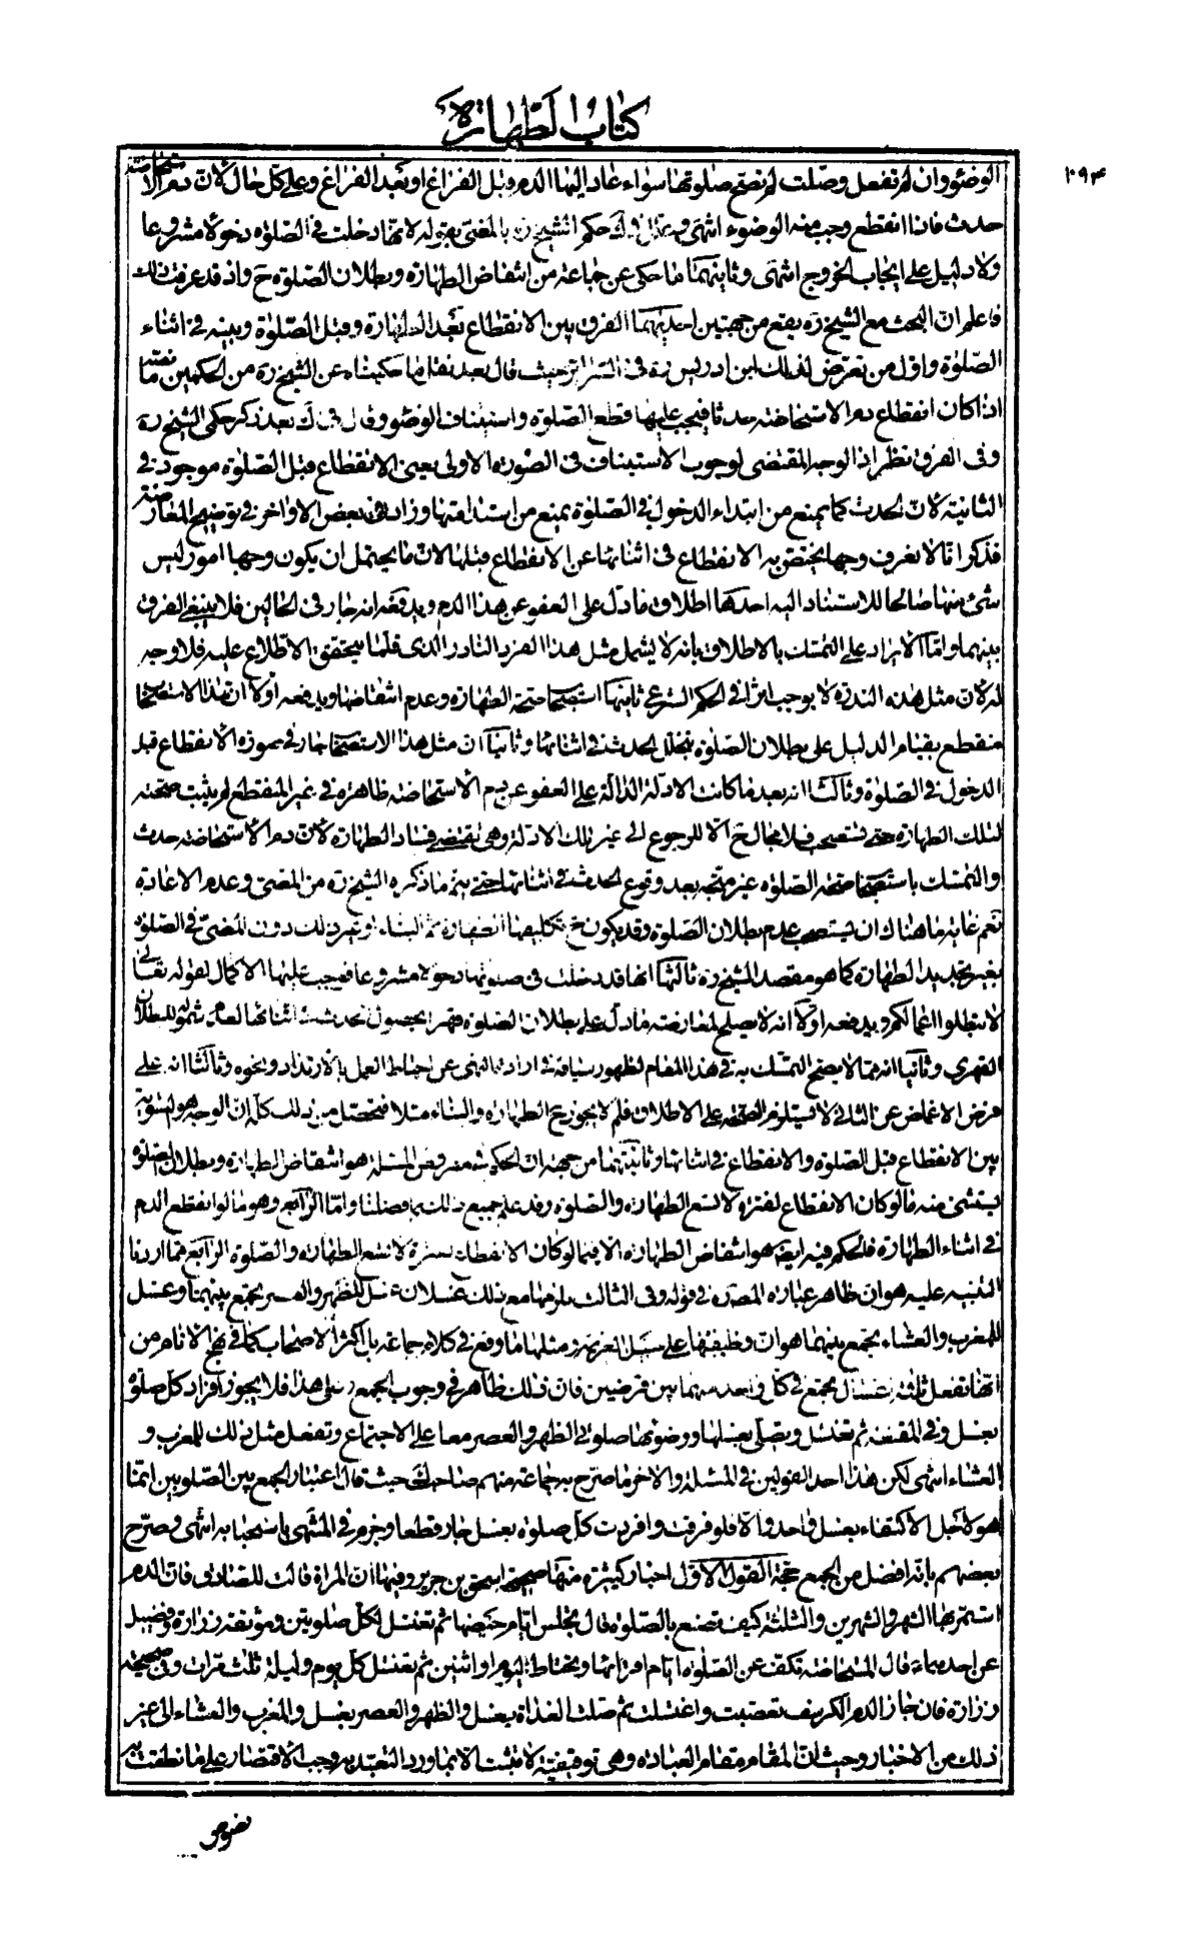 كتاب الطهارة
٢٩٤
الوضوء وان لم تفعل وصلت لم تصح صلوتها سواء عاد اليها الدم قبل الفراغ او بعد الفراغ وعلى كل حال لان دم الاستحاضة
حدث فاذا انقطع وجب منه الوضوء انتهى حكم الشيخ ره بالمضى بقوله لانها دخلت فى الصلوة دخولا مشروعا
ولا دليل على ايجاب الخروج انتهى وثانيهما ما حكى عن جماعة من انتقاض الطهارة وبطلان الصلوة ح واذ قد عرفت ذلك
فاعلم ان البحث مع الشيخ ره يقع من جهتين احديهما الفرق بين الانقطاع بعد الطهارة وقبل الصلوة وبينه فى اثناء
الصلوة واول من تعرض لذلك ابن ادريس ره فى السرائر حيث قال بعد نقل ما حكيناه عن الشيخ ره من الحكمين ما نصه
اذا كان انقطاع دم الاستحاضة حدثا فيجب عليها قطع الصلوة واستيناف الوضوء وقال فى ك بعد ذكر حكمى الشيخ ره
وفى الفرق نظر اذ الوجه المقتضى لوجوب الاستيناف فى الصورة الاولى يعنى الانقطاع قبل الصلوة موجود فى
الثانية لان الحدث كما يمنع من ابتداء الدخول فى الصلوة يمنع من استدامتها وزاد بعض الاواخر فى توضيح المعارضة
فذكر انا لا نعرف وجها يختص به الانقطاع فى اثنائها عن الانقطاع قبلها لان ما يحتمل ان يكون وجها امور ليس
شئ منها صالحا للاستناد اليه احدها اطلاق ما دل على العفو عن هذا الدم ويدفعه انه جار فى الحالين فلا ينبغى الفرق
بينهما واما الايراد على التمسك بالاطلاق بانه لا يشمل مثل هذا الفرد النادر الذى قلما يتحقق الاطلاع عليه فلا وجه
له لان مثل هذه الندرة لا يوجب اثرا فى الحكم الشرعى ثانيها استصحاب صحة الطهارة وعدم انتقاضها ويدفعه اولا ان هذا الاستصحاب
منقطع بقيام الدليل على بطلان الصلوة بتخلل الحدث فى اثنائها وثانيا ان مثل هذا الاستصحاب جار فى صورة الانقطاع قبل
الدخول فى الصلوة وثالثا انه بعد ما كانت الادلة الدالة على العفو عن دم الاستحاضة ظاهرة فى غير المنقطع لم يثبت صحته
لتلك الطهارة حتى تستصحب فلا مجال ح الا للرجوع الى غير تلك الادلة وهى تقتضى فساد الطهارة لان دم الاستحاضة حدث
والتمسك باستصحاب صحة الصلوة غير متجه بعد وقوع الحدث فى اثنائها حتى يتم ما ذكره الشيخ ره من المضى وعدم الاعادة
نعم غاية ما هناك ان يستصحب عدم بطلان الصلوة وقد يكون ح تكليفها الطهارة ثم البناء او غير ذلك دون المضى فى الصلوة
بغير تجديد الطهارة كما هو مقصد الشيخ ره ثالثها انها قد دخلت فى صلوتها دخولا مشروعا فيجب عليها الاكمال لقوله تعالى
لا تبطلوا اعمالكم ويدفعه اولا انه لا يصلح لمعارضة ما دل على بطلان الصلوة قهرا بحصول الحدث فى اثنائها لعدم شموله للبطلان
القهرى وثانيا انه مما لا يصح التمسك به فى هذا المقام لظهور سياقه فى ارادة النهى عن احباط العمل بالارتداد ونحوه وثالثا انه على
فرض الاغماض عن الثانى لا تستلزم الصحة على الاطلاق فلم لا يجوز ح الطهارة والبناء مثلا فتحصل من ذلك كله ان الوجه هو التسوية
بين الانقطاع قبل الصلوة والانقطاع فى اثنائها وثانيتهما من جهة ان الحكم فى مفروض المسئلة هو انتقاض الطهارة وبطلان الصلوة
يستثنى منه ما لو كان الانقطاع لفترة لا تسع الطهارة والصلوة وقد علم جميع ذلك بما فصلنا واما الرابع وهو ما لو انقطع الدم
فى اثناء الطهارة فالحكم فيه ايضا هو انتقاض الطهارة الا فيما لو كان الانقطاع لفترة لا تسع الطهارة والصلوة الرابع مما اردنا
التنبيه عليه هو ان ظاهر عبارة المصنف ره فى قوله وفى الثالث يلزمها مع ذلك غسلان غسل للظهر والعصر تجمع بينهما وغسل
للمغرب والعشاء تجمع بينهما هو ان وظيفتها على سبيل العزيمة ومثلها ما وقع فى كلام جماعة بل اكثر الاصحاب كما فى نهج الانام من
انها تفعل ثلثة اغسال تجمع فى كل واحد منهما بين فرضين فان ذلك ظاهر فى وجوب الجمع وعلى هذا فلا يجوز افراد كل صلوة
بغسل وفى المقنعة ثم تغتسل وتصلى بغسلها ووضوئها صلوتى الظهر والعصر معا على الاجتماع وتفعل مثل ذلك للمغرب و
العشاء انتهى لكن هذا احد القولين فى المسئلة والاخر ما صرح به جماعة منهم صاحب ك حيث قال اعتبار الجمع بين الصلوتين انما
هو لاجل الاكتفاء بغسل واحد والا فلو فرقت وافردت كل صلوة بغسل جاز قطعا وجزم فى المنتهى باستحبابه انتهى وصرح
بعضهم بانه افضل من الجمع حجة القول الاول اخبار كثيرة منها صحيحة اسحق بن جرير وفيها ان المراة قالت للصادق ع فان الدم
استمر بها الشهر والشهرين والثلثة كيف تصنع بالصلوة قال تجلس ايام حيضها ثم تغتسل لكل صلوتين وموثقة زرارة وفضيل
عن احدهما ع قال المستحاضة تكف عن الصلوة ايام اقرائها وتحتاط بيوم او اثنين ثم تغتسل كل يوم وليلة ثلث مرات وفى صحيحة
زرارة فان جاز الدم الكرسف تعصبت واغتسلت ثم صلت الغداة بغسل والظهر والعصر بغسل والمغرب والعشاء الى غير
ذلك من الاخبار وحيث ان المقام مقام العبادة وهى توقيفية لا تثبت الا بما ورد التعبد به وجب الاقتصار على ما نطقت به
نصوص